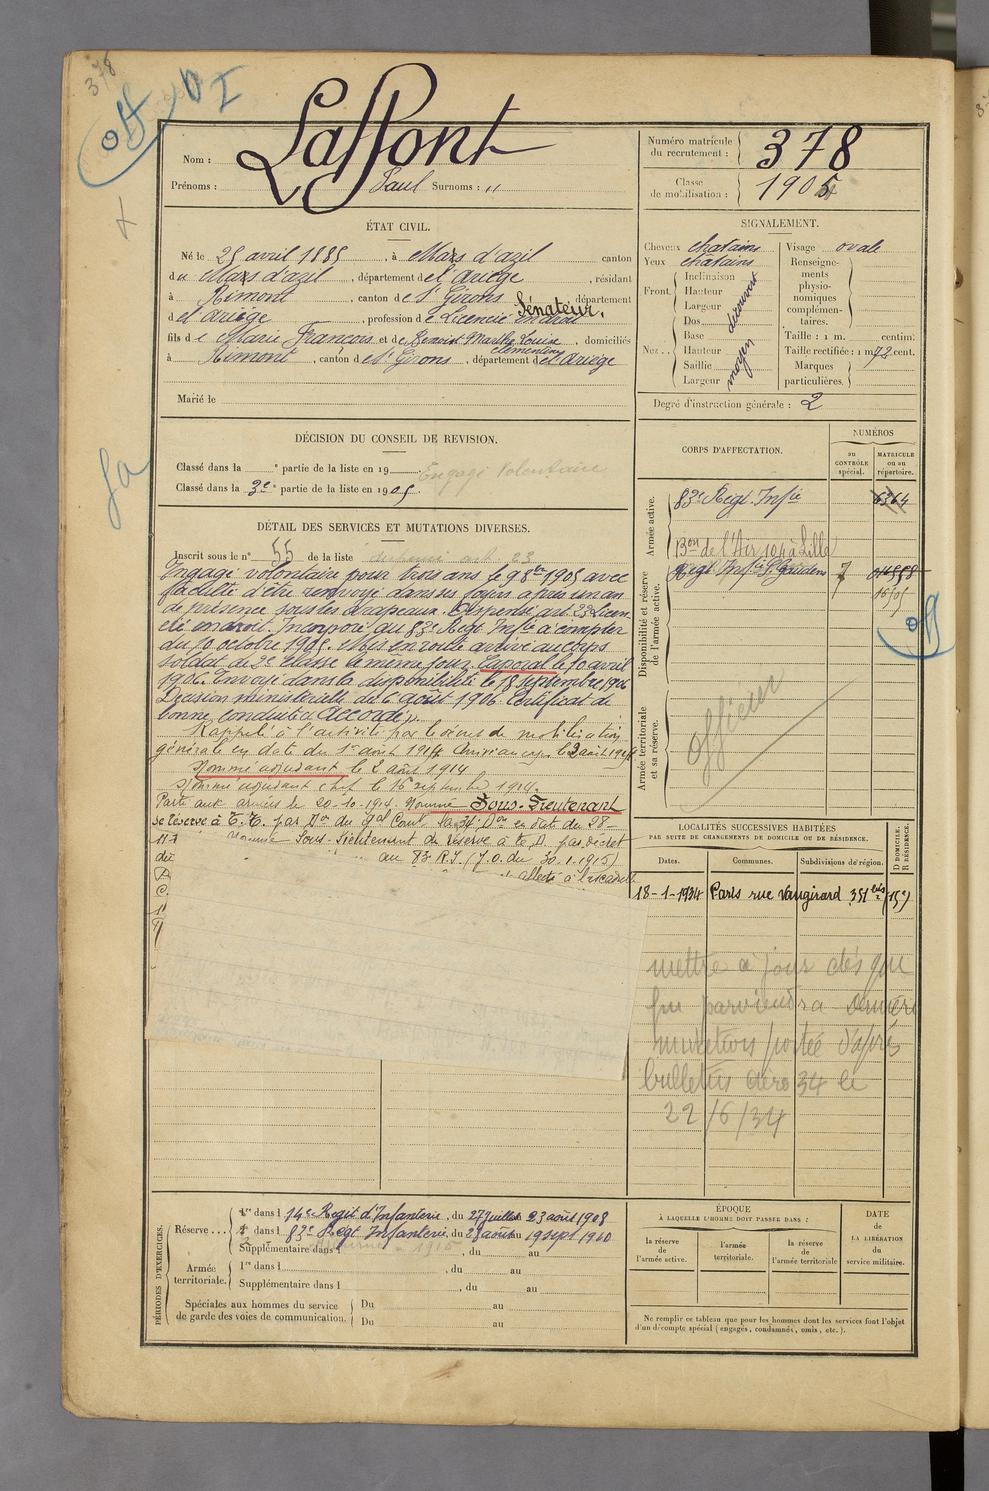 378
off
DI
Nom : Laffont
Prénoms : Paul Surnoms : "
Numéro matricule du recrutement : 378
Classe de mobilisation : 1905
ÉTAT CIVIL.
Né le 25 avril 1885, à Mars d'azil canton
du Mars d'azil, département de l'Ariège, résidant
à Rimont, canton de St Girons, département
de l'Ariège, profession de Licencié en droit Sénateur.
fils de Marie François et de Benoist Marthe Louise Clémentine, domiciliés
à Rimont, canton de St Girons, département de l'Ariège
Marié le
SIGNALEMENT.
Cheveux chatains Visage ovale
Yeux chatains Renseignements physionomiques complémentaires.
Front. Inclinaison Hauteur Largeur découvert
Nez.. Dos Base Hauteur Saillie Largeur moyen
Taille : 1 m. centim.
Taille rectifiée : 1 m 72 cent.
Marques particulières.
Degré d'instruction générale : 2
DÉCISION DU CONSEIL DE REVISION.
Classé dans la e partie de la liste en 19 Engagé Volontaire
Classé dans la 3e partie de la liste en 1905.
CORPS D'AFFECTATION.
NUMÉROS
AU CONTRÔLE spécial.
MATRICULE ou au répertoire.
Armée active.
83e Regt. Infie 6364
Bon de l'Air 104 à Lille
Disponibilité et réserve de l'armée active.
Regt Infie St Gaudens 7
off
Armée territoriale et sa réserve.
officier
DÉTAIL DES SERVICES ET MUTATIONS DIVERSES.
Inscrit sous le n° 55 de la liste dispensé art. 23
Engagé volontaire pour trois ans le 9 8bre 1905 avec
faculté d'être renvoyé dans ses foyers après un an
de présence sous les drapeaux. Dispensé art. 23 Licen
cié en droit. Incorporé au 83e Regt Infie à compter
du 10 octobre 1905. Mis en route arrivé au corps
soldat de 2e classe le même jour. Caporal le 10 avril
1906. Envoyé dans la disponibilité le 18 septembre 1906
Décision ministérielle du 6 août 1906. Certificat de
bonne conduite "Accordé".
Rappelé à l'activité par le décret de mobilisation
générale en date du 1er août 1914. Arrivé au corps le 2 août 1914
Nommé adjudant le 2 août 1914
Nommé adjudant chef le 16 septembre 1914.
Parti aux armées le 20-10-1914. Nommé Sous-Lieutenant
de Réserve à T.T. par Don du Gal Comt la 34e Don en date du 28
11-1 nommé Sous-Lieutenant de Réserve à T.D. par décret
du au 83 R.I. (J.O. du 30.1.1915)
affecté à l'escadrille
LOCALITÉS SUCCESSIVES HABITÉES
PAR SUITE DE CHANGEMENTS DE DOMICILE OU DE RÉSIDENCE.
Dates. Communes. Subdivisions de région. D DOMICILE. R RÉSIDENCE.
18-1-1934 Paris rue Vaugirard 351 bis (15e)
mettre à jour dès que
lui parviendra
mutations portée d'après
bulletin aéro 34 le
22/6/34
PÉRIODES D'EXERCICES.
Réserve.... 1re dans l 14e Regit d'Infanterie, du 27 juillet au 23 août 1908
2e dans l 83e Regt Infanterie, du 28 août au 19 sept 1910
Supplémentaire dans l , du au
Armée territoriale. 1re dans l , du au
Supplémentaire dans l , du au
Spéciales aux hommes du service de garde des voies de communication. Du au
Du au
ÉPOQUE
À LAQUELLE L'HOMME DOIT PASSER DANS :
la réserve de l'armée active.
l'armée territoriale.
la réserve de l'armée territoriale
DATE de LA LIBÉRATION du service militaire.
Ne remplir ce tableau que pour les hommes dont les services font l'objet
d'un décompte spécial (engagés, condamnés, omis, etc.).